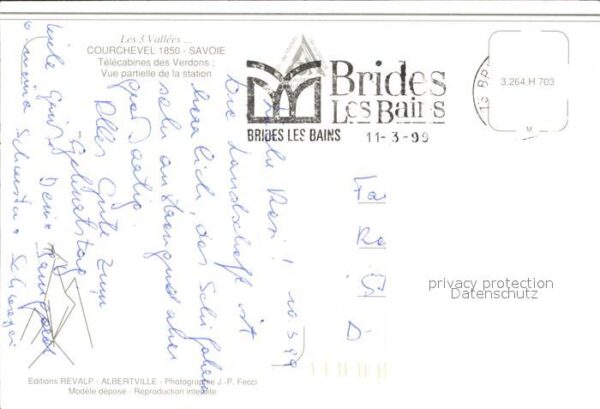 Les 3 Vallées ...
COURCHEVEL 1850 - SAVOIE
Télécabines des Verdons :
Vue partielle de la station
Brides
Les Bains
BRIDES LES BAINS 11-3-99
3.264.H 703
M
10.3.99
Die Landschaft ist
herrlich, das Schifahren
sehr anstrengend aber
Alles Gute zum
Geburtstag
Viele Grüße
Fa
Ro
D
privacy protection
Datenschutz
Editions REVALP - ALBERTVILLE - Photographe J.-P. Fecci
Modèle déposé - Reproduction interdite